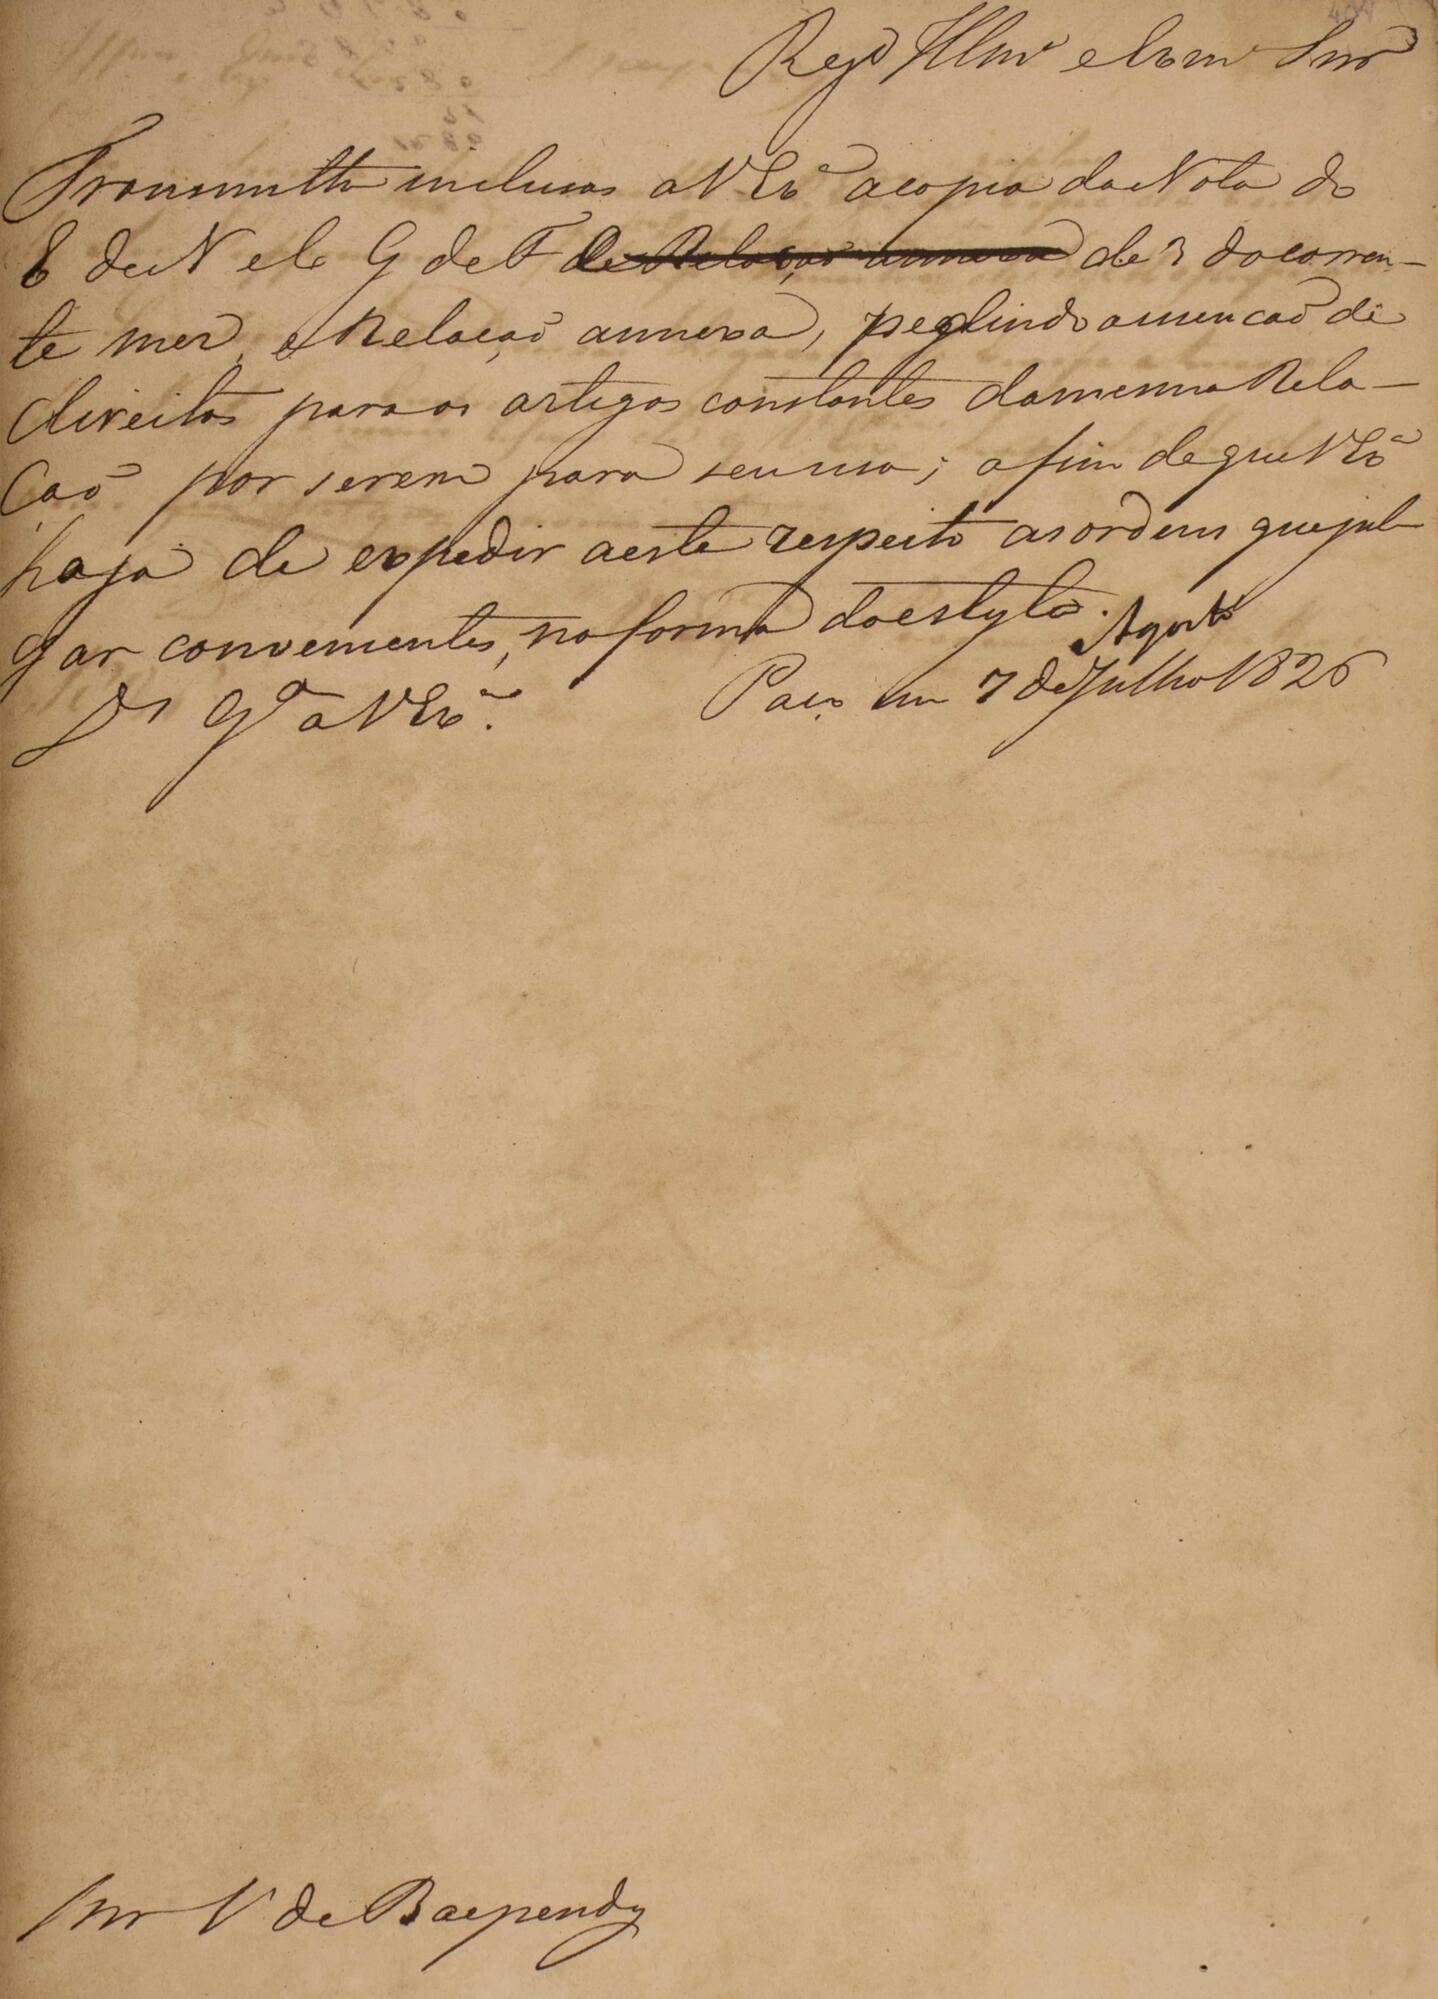 Reg.do Illmo e Exmo Snr
Transmitto inclusas a V Exa a copia da Nota do
E de N e C G de F de Relação annexa de 3 do corren-
te mez, e Relação annexa, pedindo a izencaõ de
direitos para os artigos constantes da mesma Rela-
caõ por serem para seu uso; a fim de que V Exa
haja de expedir a este respeito as ordens que jul-
gar convenientes, na forma do estylo.
Agosto
Ds Gde a V Exa. Paço em 7 de Julho 1826
Snr V de Baependy